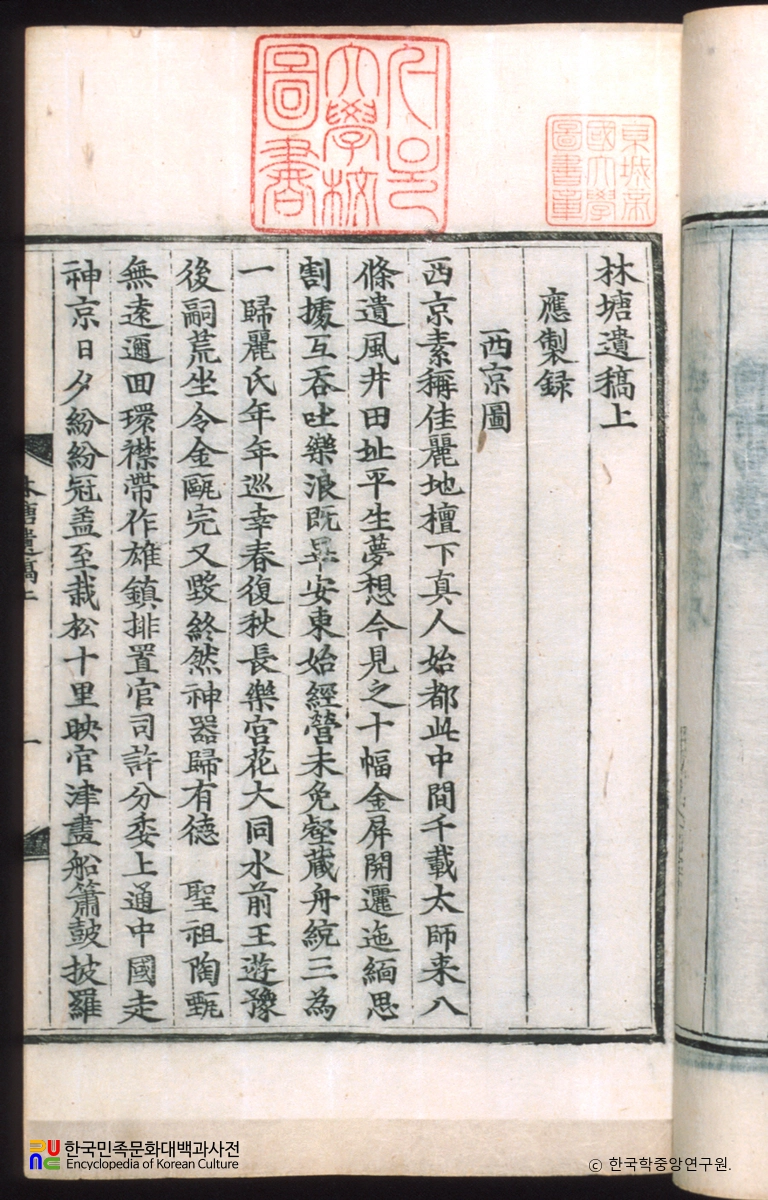 林塘遺稿上
應製録
西京圖
西京素稱佳麗地檀下真人始都此中間千載太師来八
條遺風井田址平生夢想今見之十幅金屏開邐迤緬思
割據互吞吐樂浪既 安東始經營未免壑藏舟統三為
一歸麗氏年年巡幸春復秋長樂宮花大同水前王遊豫
後嗣荒坐令金甌完又毁終然神器歸有德 聖祖陶甄
無遠邇回環襟帶作雄鎮排置官司許分委上通中國走
神京日夕紛紛冠盖至栽松十里映官津畫船簫鼓披羅
林塘遺稿上
一
大學校
圖書
京城帝
國大學
圖書章
한국민족문화대백과사전
Encyclopedia of Korean Culture
© 한국학중앙연구원.